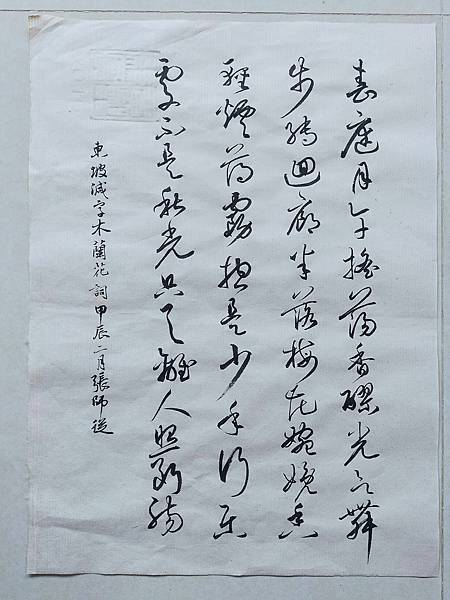 春庭月午搖蕩香醪光欲舞
步轉迴廊半落梅花婉娩香
輕煙薄霧揔是少年行樂
處不是秋光只与離人照斷腸
東坡減字木蘭花詞甲辰二月張師從